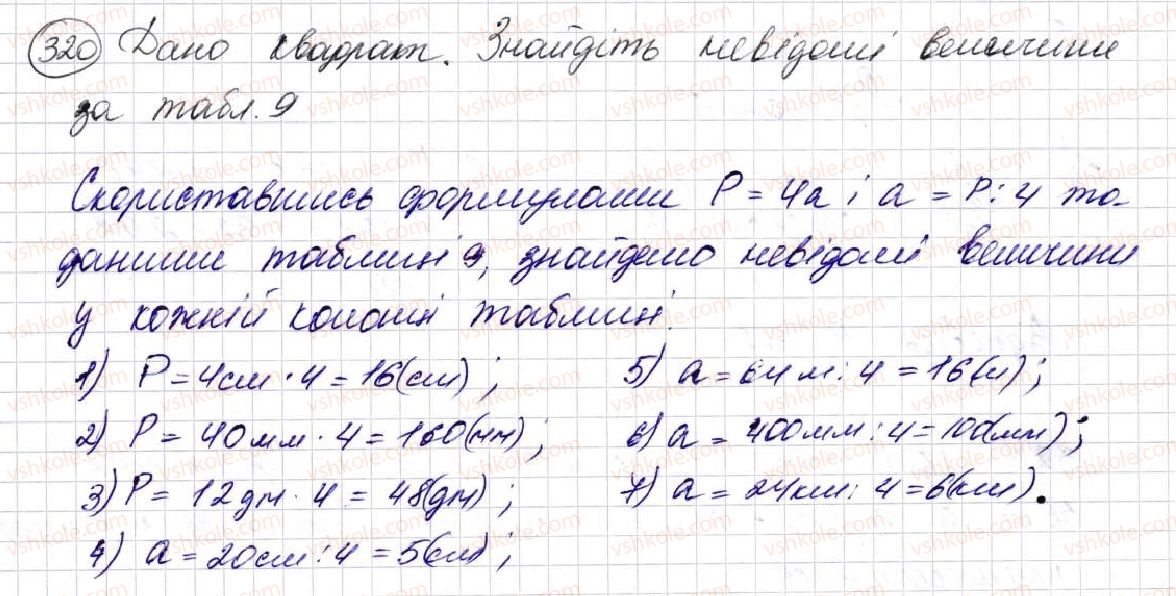 320 Дано квадрат. Знайдіть невідомі величини
за табл. 9
Скориставшись формулами P = 4a і a = P : 4 та
даними таблиці 9, знайдемо невідомі величини
у кожній колонці таблиці.
1) P = 4см · 4 = 16(см) ;
2) P = 40мм · 4 = 160(мм) ;
3) P = 12дм · 4 = 48(дм) ;
4) a = 20см : 4 = 5(см) ;
5) a = 64м : 4 = 16(м) ;
6) a = 400мм : 4 = 100(мм) ;
7) a = 24км : 4 = 6(км) .